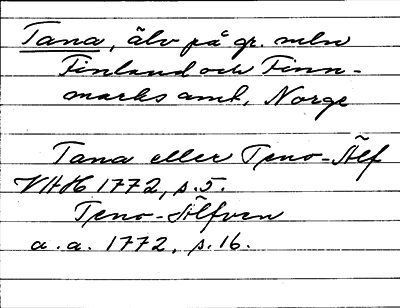 Tana, älv på gr. mln
Finland och Finn-
marks amt, Norge
Tana eller Teno-Älf
VAH 1772, s. 5.
Teno-Älfven
a. a. 1772, s. 16.